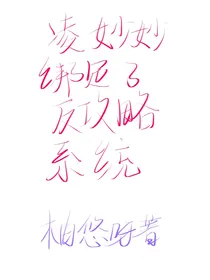 凌妙妙
绑迟了
反攻略
系统
柚悠呀著